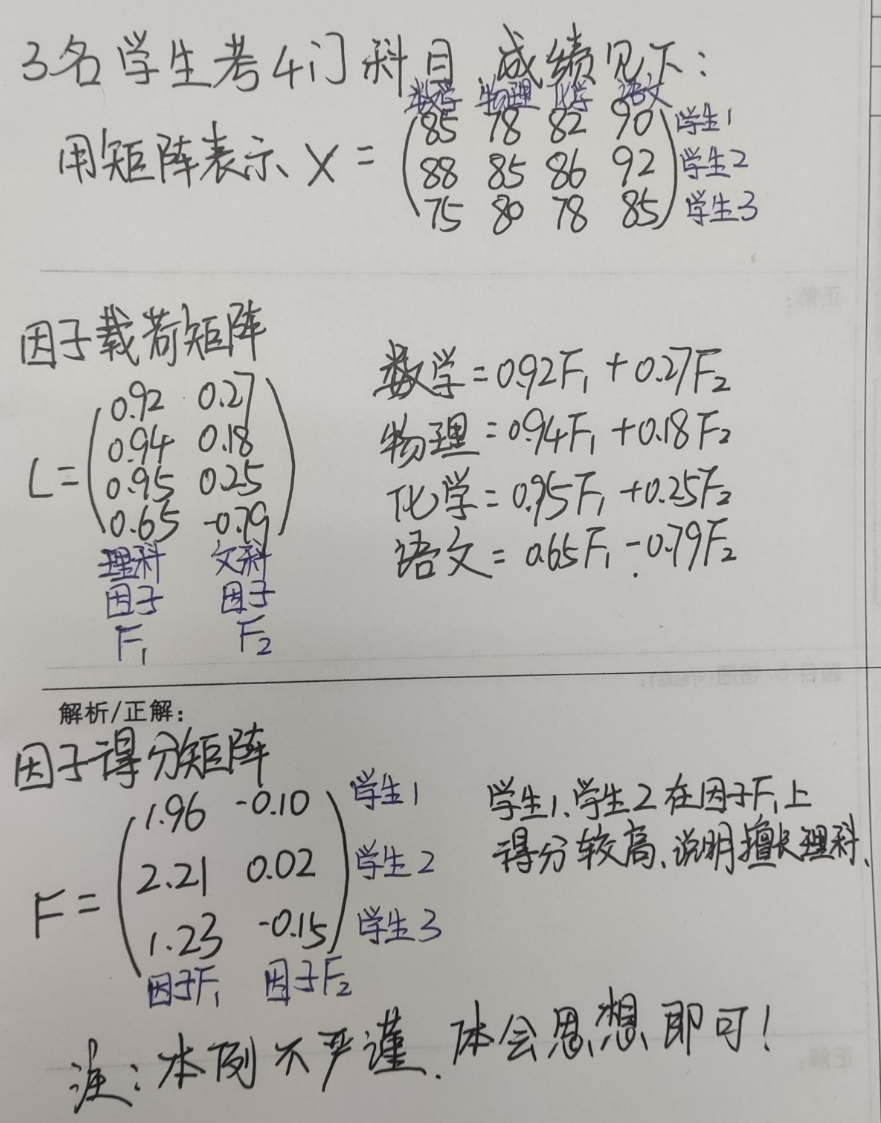 3名学生考4门科目 成绩见下:
数学 物理 化学 语文
用矩阵表示 X =
85 78 82 90 学生1
88 85 86 92 学生2
75 80 78 85 学生3
因子载荷矩阵
L =
0.92 0.27
0.94 0.18
0.95 0.25
0.65 -0.79
理科 文科
因子 因子
F1 F2
数学=0.92F1+0.27F2
物理=0.94F1+0.18F2
化学=0.95F1+0.25F2
语文=0.65F1-0.79F2
解析/正解:
因子得分矩阵
F =
1.96 -0.10 学生1
2.21 0.02 学生2
1.23 -0.15 学生3
因子F1 因子F2
学生1、学生2在因子F1上
得分较高、说明擅长理科、
注:本例不严谨、体会思想即可!
正解:
正解: